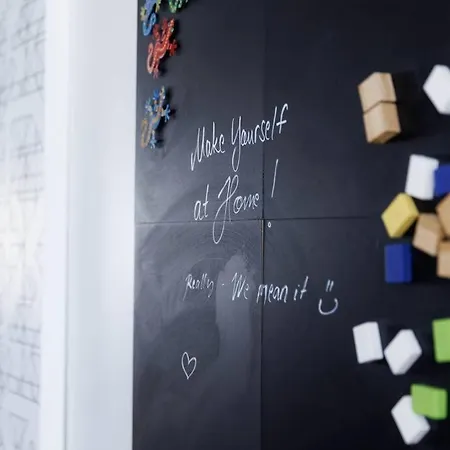 Make Yourself
at Home!
Really - We mean it :)
♡